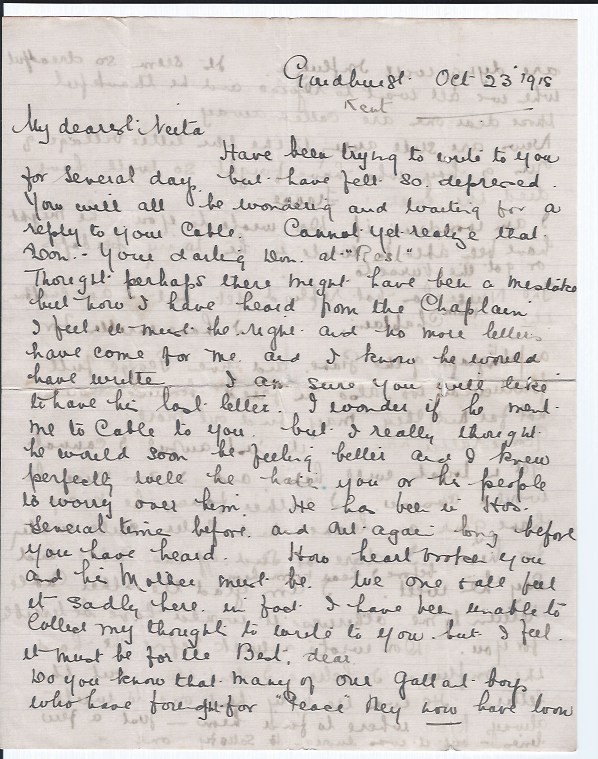 Goudhurst. Oct 23 1918
Kent
My dearest Neita
Have been trying to write to you
for several days, but have felt so depressed.
You will all be wondering and waiting for a
reply to your Cable. Cannot yet realize that
Your darling at "Rest"
Thought perhaps there might have been a mistake
but now I have heard from the Chaplain
I feel it must be right and no more letters
have come for me and I know he would
have written. I am sure you will like
to have his last letter. I wonder if he meant
me to Cable to you. but I really thought
he would soon be feeling better and I knew
perfectly well he hate you or his people
to worry over him. He has been in Hos.
several time before. and out again long before
you have heard. How heart broken you
and his Mother must be. We one & all feel
it sadly here. in fact I have been unable to
collect my thought to write to you. but I feel.
it must be for the Best, dear
Do you know that many of our gallant boys
who have fought for "Peace" they now have won